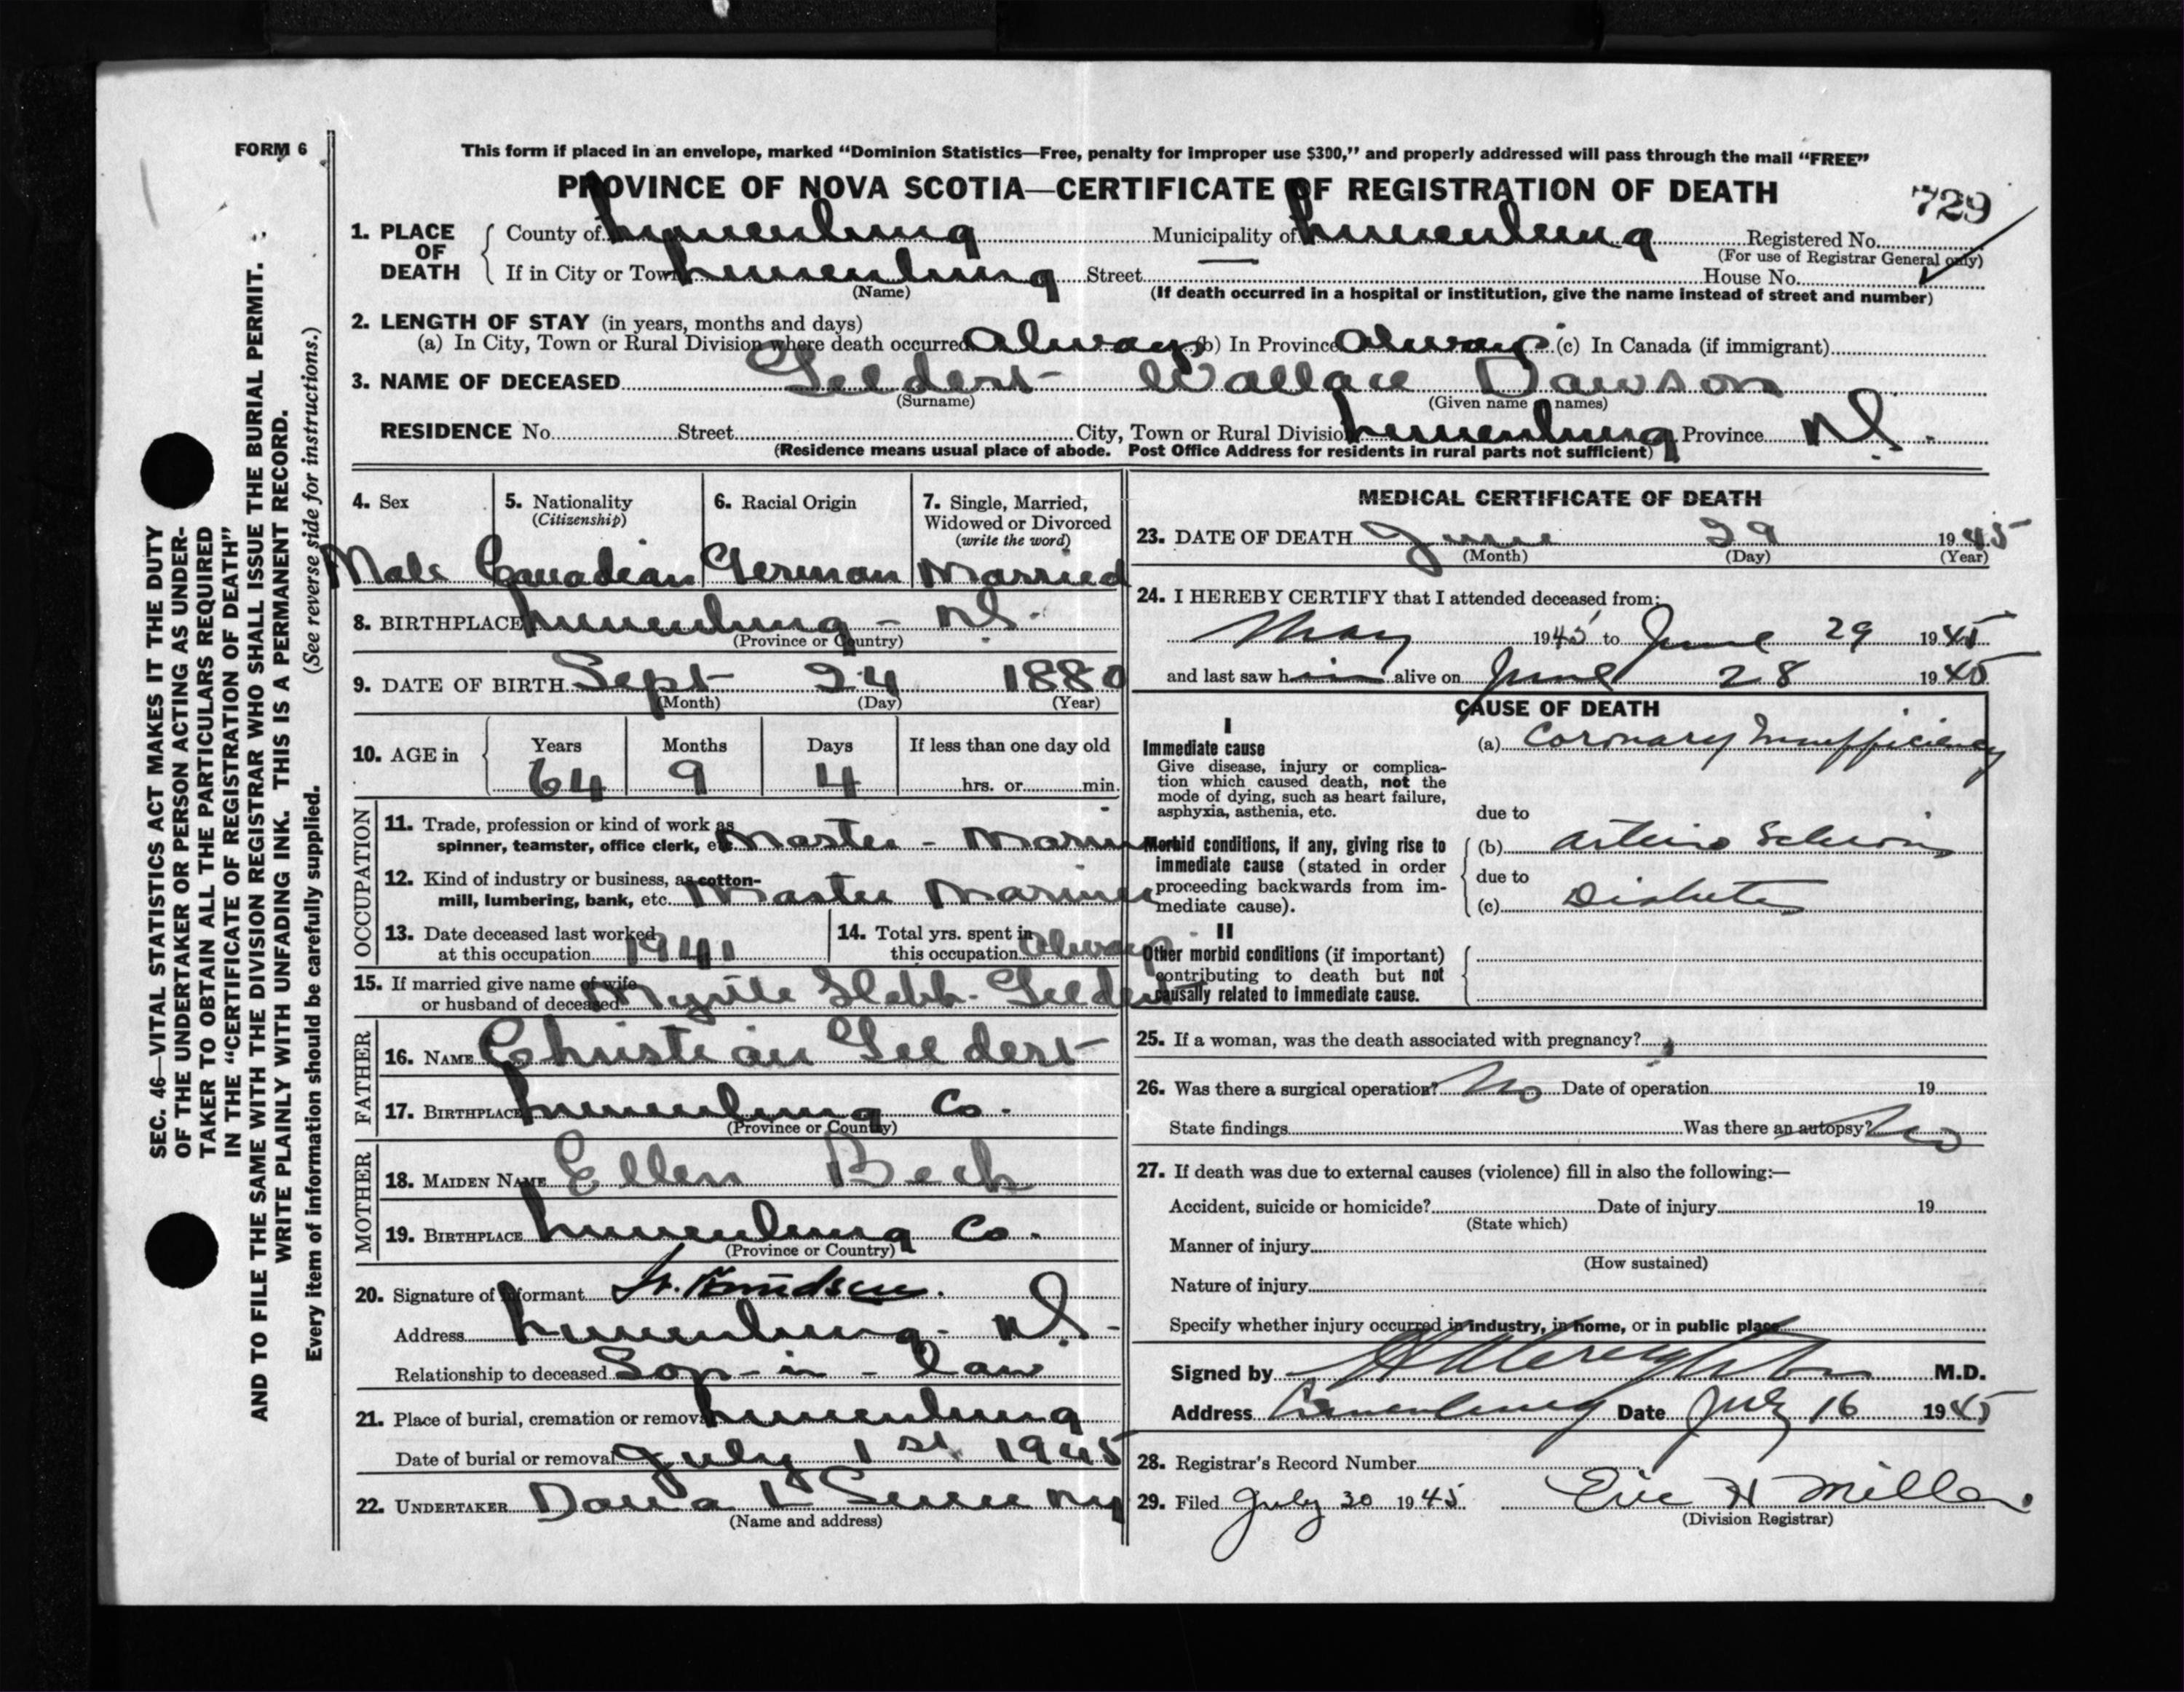 FORM 6
This form if placed in an envelope, marked “Dominion Statistics—Free, penalty for improper use $300,” and properly addressed will pass through the mail “FREE”
PROVINCE OF NOVA SCOTIA—CERTIFICATE OF REGISTRATION OF DEATH
729
1. PLACE OF DEATH
County of Lunenburg Municipality of Lunenburg Registered No.
(For use of Registrar General only)
If in City or Town Lunenburg Street House No.
(Name)
(If death occurred in a hospital or institution, give the name instead of street and number)
2. LENGTH OF STAY (in years, months and days)
(a) In City, Town or Rural Division where death occurred Always (b) In Province Always (c) In Canada (if immigrant)
3. NAME OF DECEASED Geldert Wallace Dawson
(Surname) (Given name or names)
RESIDENCE No. Street City, Town or Rural Division Lunenburg Province N.S.
(Residence means usual place of abode. Post Office Address for residents in rural parts not sufficient)
4. Sex
Male
5. Nationality
(Citizenship)
Canadian
6. Racial Origin
German
7. Single, Married,
Widowed or Divorced
(write the word)
Married
8. BIRTHPLACE Lunenburg - N.S.
(Province or Country)
9. DATE OF BIRTH Sept 24 1880
(Month) (Day) (Year)
10. AGE in
Years Months Days If less than one day old
64 9 4 hrs. or min.
OCCUPATION
11. Trade, profession or kind of work as
spinner, teamster, office clerk, etc. Master - Mariner
12. Kind of industry or business, as cotton-
mill, lumbering, bank, etc. Master Mariner
13. Date deceased last worked
at this occupation 1941
14. Total yrs. spent in
this occupation Always
15. If married give name of wife
or husband of deceased Geldert
FATHER
16. NAME Christian Geldert
17. BIRTHPLACE Lunenburg Co.
(Province or Country)
MOTHER
18. MAIDEN NAME Ellen Beck
19. BIRTHPLACE Lunenburg Co.
(Province or Country)
20. Signature of informant
Address Lunenburg - N.S.
Relationship to deceased Son-in-law
21. Place of burial, cremation or removal Lunenburg
Date of burial or removal July 1st 1945
22. UNDERTAKER
(Name and address)
MEDICAL CERTIFICATE OF DEATH
23. DATE OF DEATH June 29 1945
(Month) (Day) (Year)
24. I HEREBY CERTIFY that I attended deceased from:
May 1945 to June 29 1945
and last saw him alive on June 28 1945
CAUSE OF DEATH
I
Immediate cause
Give disease, injury or complica-
tion which caused death, not the
mode of dying, such as heart failure,
asphyxia, asthenia, etc.
(a) Coronary Insufficiency
due to
Morbid conditions, if any, giving rise to
immediate cause (stated in order
proceeding backwards from im-
mediate cause).
(b) Arterio Sclerosis
due to
(c) Diabetes
II
Other morbid conditions (if important)
contributing to death but not
causally related to immediate cause.
25. If a woman, was the death associated with pregnancy?
26. Was there a surgical operation? No Date of operation 19
State findings Was there an autopsy? No
27. If death was due to external causes (violence) fill in also the following:—
Accident, suicide or homicide? Date of injury 19
(State which)
Manner of injury
(How sustained)
Nature of injury
Specify whether injury occurred in industry, in home, or in public place
Signed by M.D.
Address Lunenburg Date July 16 1945
28. Registrar's Record Number
29. Filed July 30 1945 Eric H Miller
(Division Registrar)
SEC. 46—VITAL STATISTICS ACT MAKES IT THE DUTY
OF THE UNDERTAKER OR PERSON ACTING AS UNDER-
TAKER TO OBTAIN ALL THE PARTICULARS REQUIRED
IN THE “CERTIFICATE OF REGISTRATION OF DEATH”
AND TO FILE THE SAME WITH THE DIVISION REGISTRAR WHO SHALL ISSUE THE BURIAL PERMIT.
WRITE PLAINLY WITH UNFADING INK. THIS IS A PERMANENT RECORD.
Every item of information should be carefully supplied. (See reverse side for instructions.)